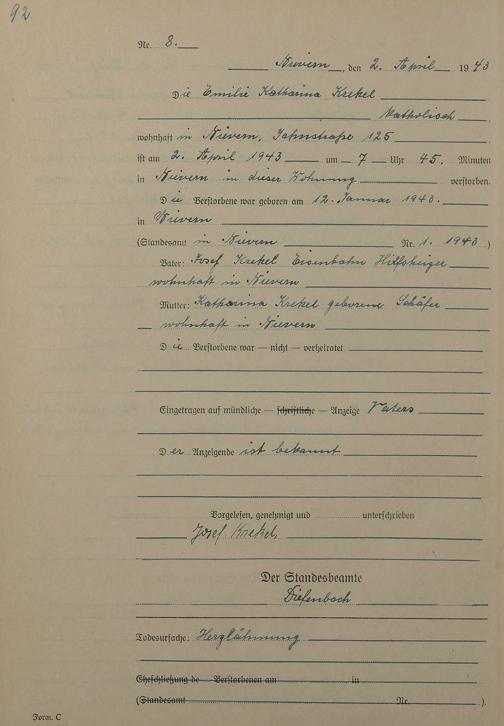 92
Nr. 8.
Nievern, den 2. April 1943
Die Emilie Katharina Krekel
katholisch
wohnhaft in Nievern, Jahnstraße 125
ist am 2. April 1943 um 7 Uhr 45. Minuten
in Nievern in dieser Wohnung verstorben.
Die Verstorbene war geboren am 12. Januar 1943.
in Nievern
(Standesamt in Nievern Nr. 1. 1943)
Vater: Josef Krekel Eisenbahn
wohnhaft in Nievern
Mutter: Katharina Krekel geborene Schäfer
wohnhaft in Nievern
Die Verstorbene war — nicht — verheiratet
Eingetragen auf mündliche — schriftliche — Anzeige Vaters
Der Anzeigende ist bekannt
Vorgelesen, genehmigt und unterschrieben
Josef Krekel
Der Standesbeamte
Diefenbach
Todesursache: Herzlähmung
Eheschließung de Verstorbenen am in
(Standesamt Nr. ).
Form. C